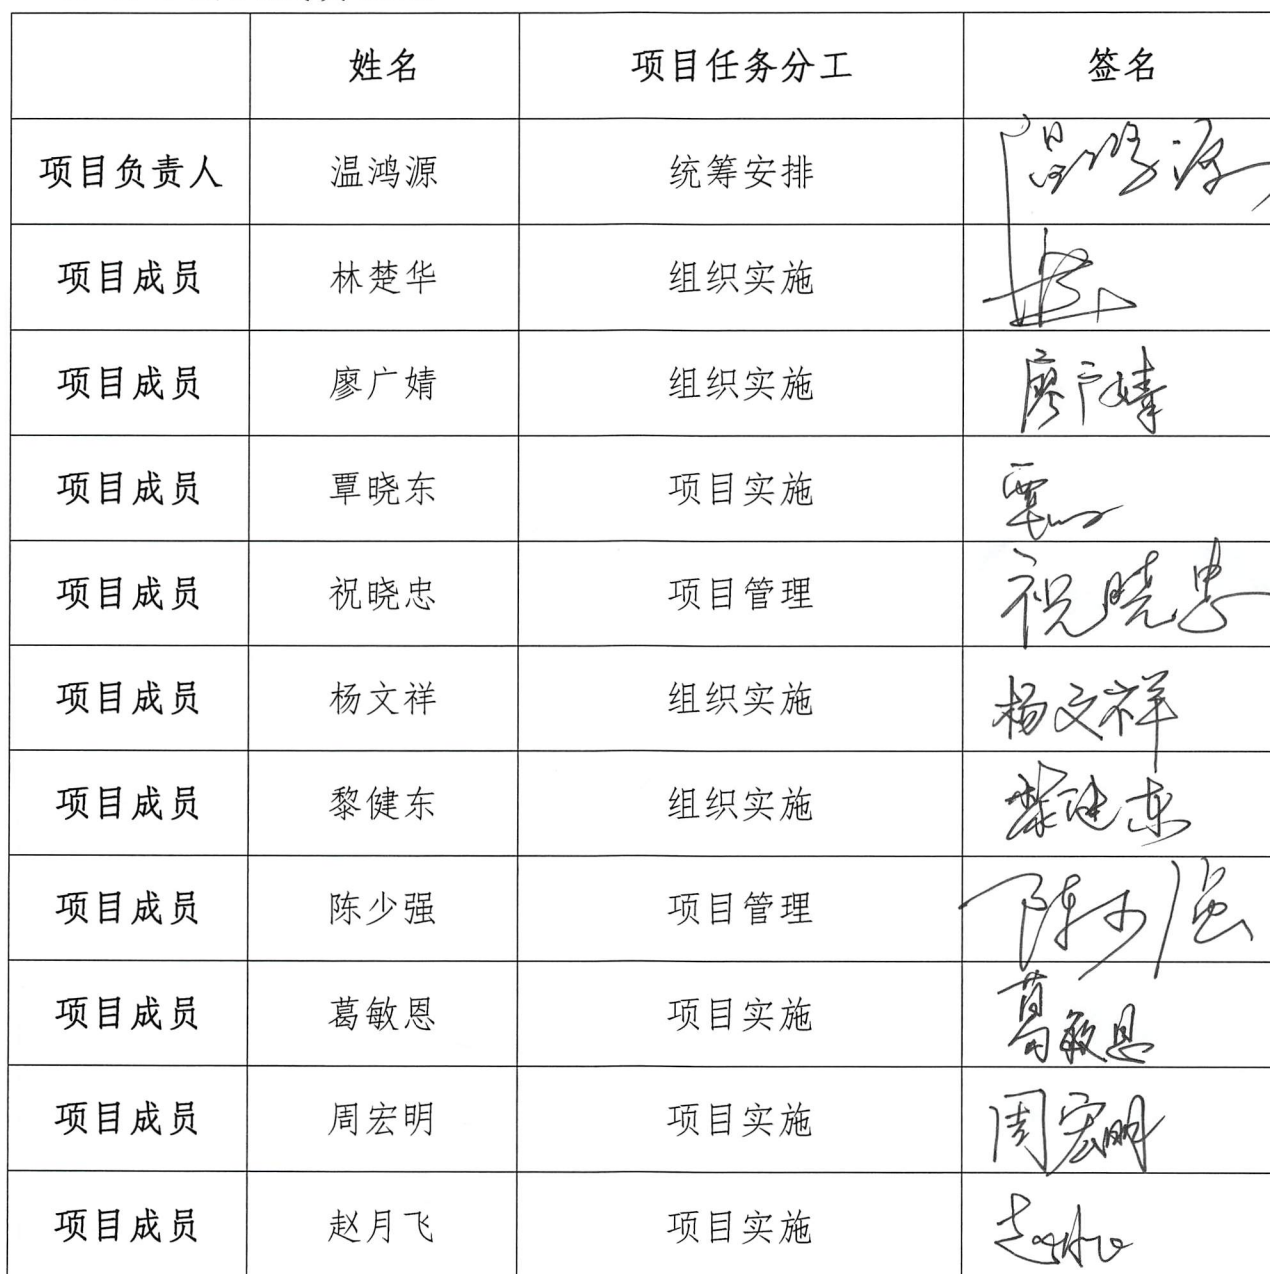 姓名 项目任务分工 签名
项目负责人 温鸿源 统筹安排 温鸿源
项目成员 林楚华 组织实施
项目成员 廖广婧 组织实施 廖广婧
项目成员 覃晓东 项目实施
项目成员 祝晓忠 项目管理 祝晓忠
项目成员 杨文祥 组织实施 杨文祥
项目成员 黎健东 组织实施 黎健东
项目成员 陈少强 项目管理 陈少强
项目成员 葛敏恩 项目实施 葛敏恩
项目成员 周宏明 项目实施 周宏明
项目成员 赵月飞 项目实施